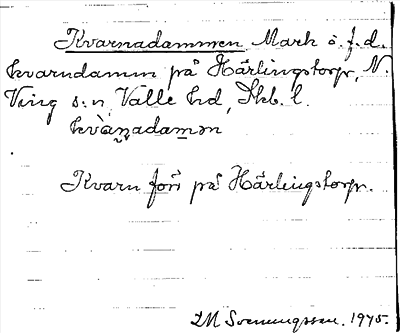 Kvarnadammen Mark ö. f. d.
kvarndamm på Härlingstorp, N.
Ving s:n, Valle hd, Skb. l.
kvàṇadamən
Kvarn förr på Härlingstorp.
LM Svenungsson. 1975.